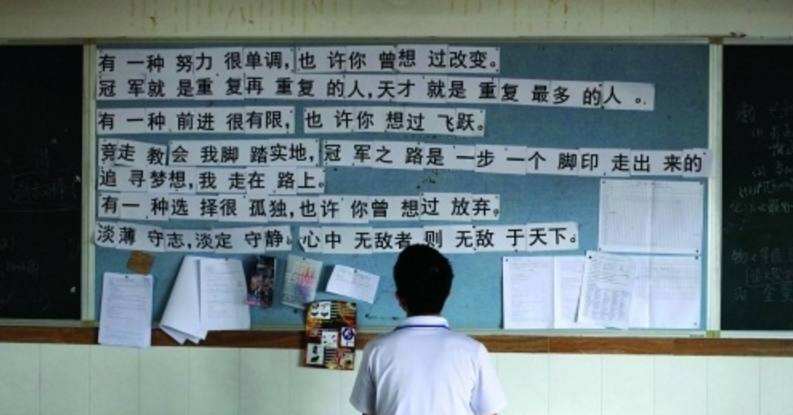 有一种努力很单调,也许你曾想过改变。
冠军就是重复再重复的人,天才就是重复最多的人。
有一种前进很有限,也许你想过飞跃。
竞走教会我脚踏实地,冠军之路是一步一个脚印走出来的
追寻梦想,我走在路上。
有一种选择很孤独,也许你曾想过放弃。
淡薄守志,淡定守静。心中无敌者,则无敌于天下。